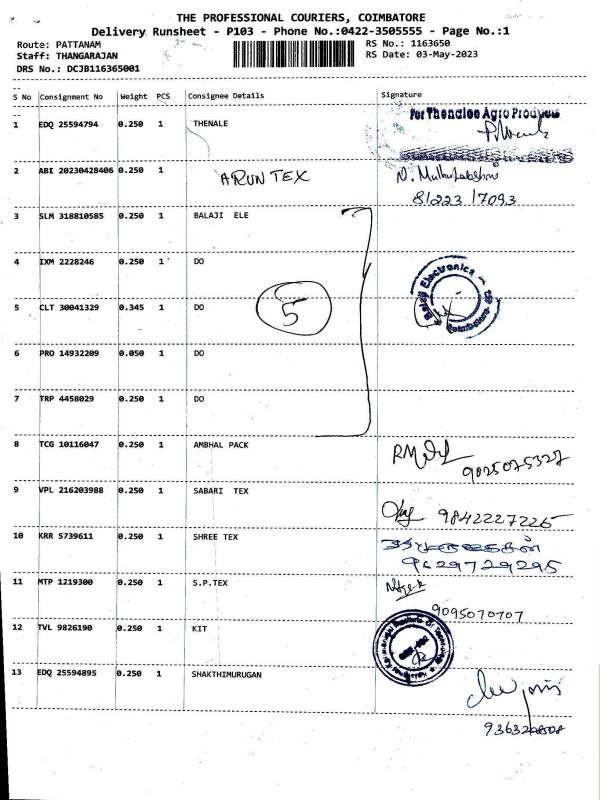 THE PROFESSIONAL COURIERS, COIMBATORE
Delivery Runsheet - P103 - Phone No.:0422-3505555 - Page No.:1
Route: PATTANAM
RS No.: 1163650
Staff: THANGARAJAN
RS Date: 03-May-2023
DRS No.: DCJB116365001
S No Consignment No Weight PCS Consignee Details Signature
1 EDQ 25594794 0.250 1 THENALE
For Thenalee Agro Products
2 ABI 20230428406 0.250 1 ARUN TEX N. Muthulakshmi
81223 17093
3 SLM 318810585 0.250 1 BALAJI ELE
4 IXM 2228246 0.250 1 DO
Balaji Electronics
5 CLT 30041329 0.345 1 DO 5
6 PRO 14932209 0.050 1 DO
7 TRP 4458029 0.250 1 DO
8 TCG 10116047 0.250 1 AMBHAL PACK
9025075327
9 VPL 216203988 0.250 1 SABARI TEX
9842227225
10 KRR 5739611 0.250 1 SHREE TEX
9629729295
11 MTP 1219300 0.250 1 S.P.TEX
9095070707
12 TVL 9826190 0.250 1 KIT
13 EDQ 25594895 0.250 1 SHAKTHIMURUGAN